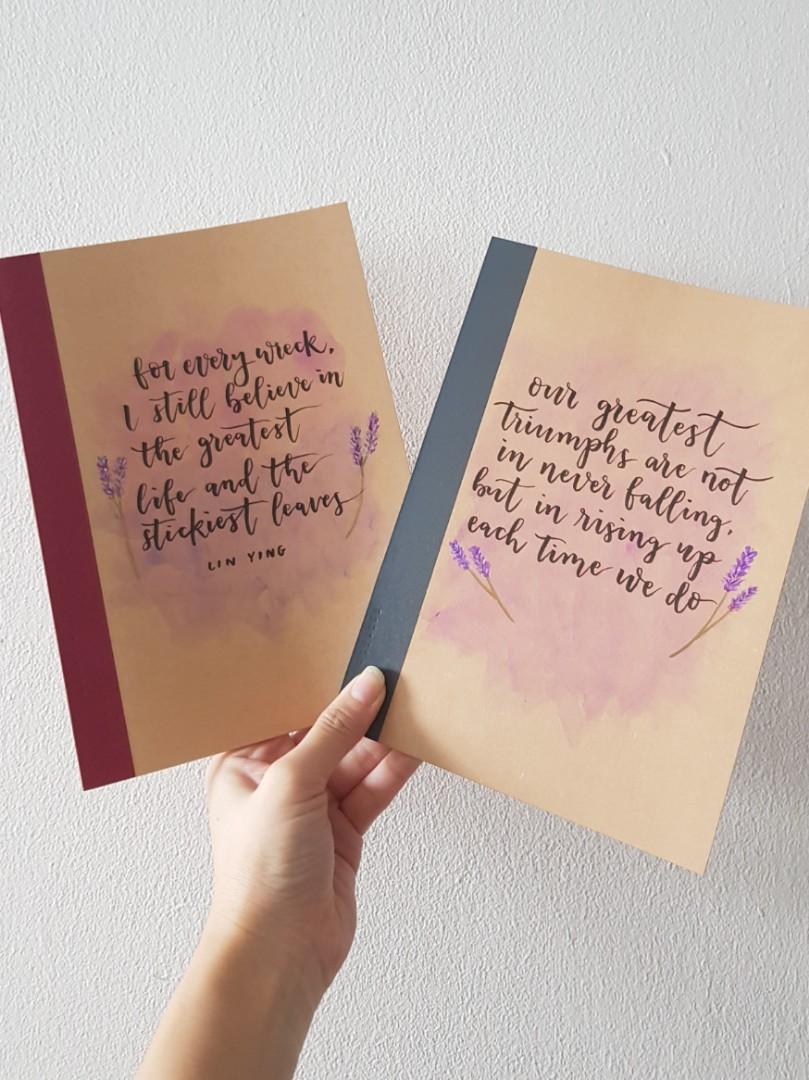 for every wreck,
I still believe in
the greatest
life and the
stickiest leaves
LIN YING
our greatest
triumphs are not
in never falling,
but in rising up
each time we do